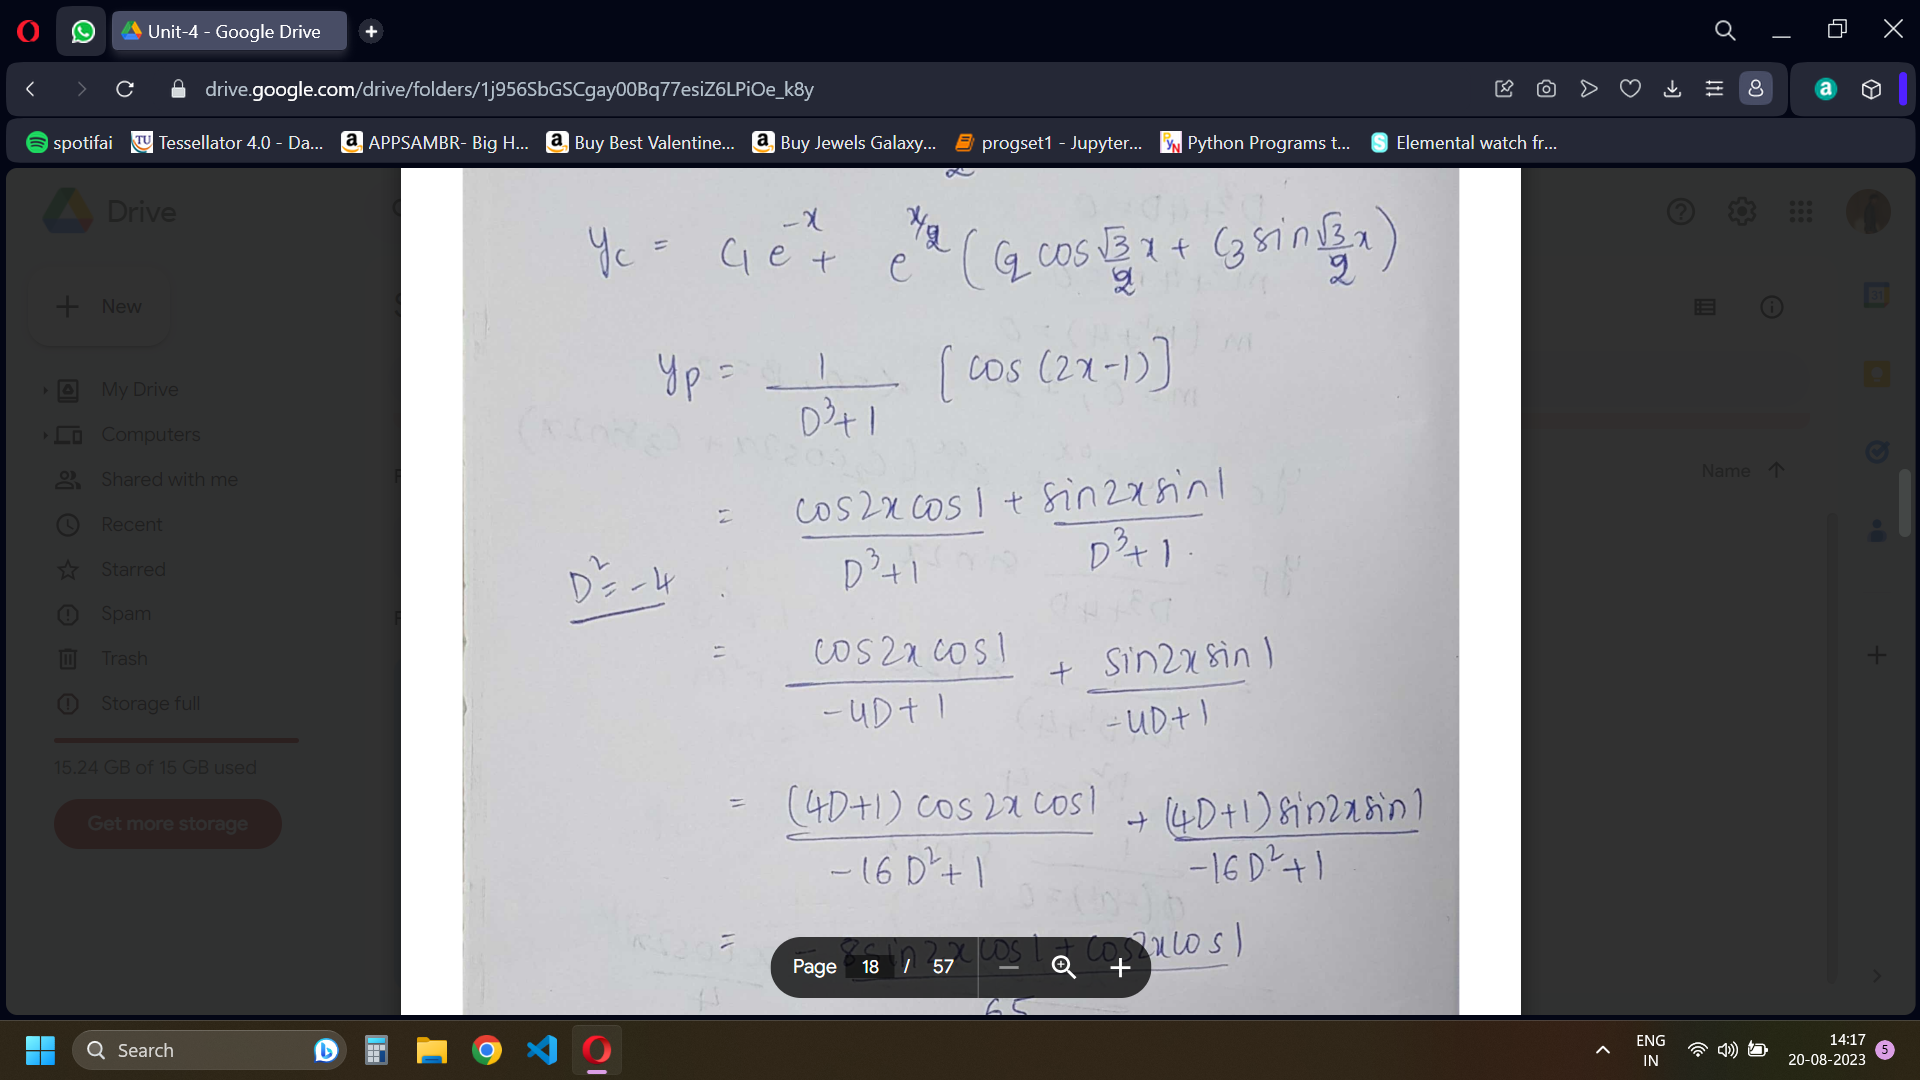 Unit-4 - Google Drive
drive.google.com/drive/folders/1j956SbGSCgay00Bq77esiZ6LPiOe_k8y
spotifai TU Tessellator 4.0 - Da... APPSAMBR- Big H... Buy Best Valentine... Buy Jewels Galaxy... progset1 - Jupyter... Python Programs t... Elemental watch fr...
Drive
New
My Drive
Computers
Shared with me
Recent
Starred
Spam
Trash
Storage full
15.24 GB of 15 GB used
Get more storage
Name
y_c = c_1 e^{-x} + e^{x/2} (c_2 cos √3/2 x + c_3 sin √3/2 x)
y_p = 1/(D^3+1) [cos (2x-1)]
= cos2x cos1/(D^3+1) + sin2x sin1/(D^3+1)
D^2 = -4
= cos2x cos1/(-4D+1) + sin2x sin1/(-4D+1)
= (4D+1) cos2x cos1/(-16D^2+1) + (4D+1) sin2x sin1/(-16D^2+1)
= - 8sin2x cos1 + cos2x cos1/65
Page 18 / 57
Search
ENG
IN
14:17
20-08-2023
5